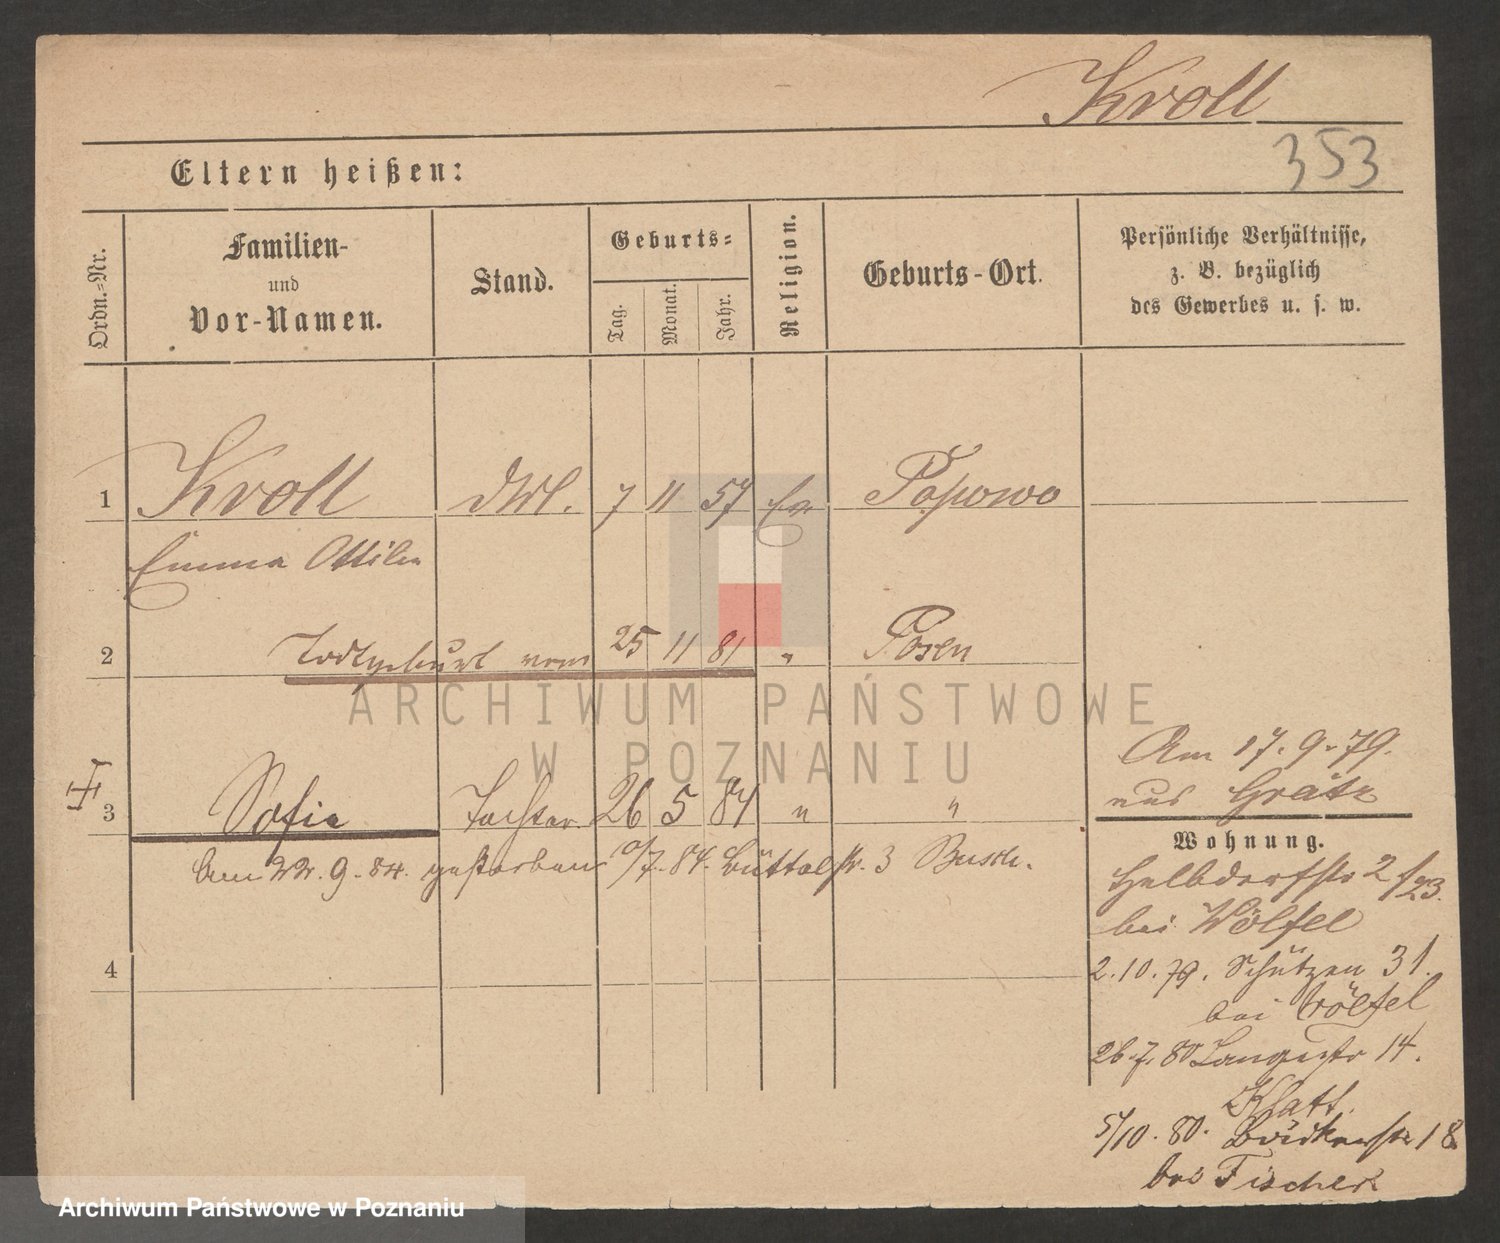 Kroll
353
Eltern heißen:
Ordn.-Nr.
Familien-
und
Vor-Namen.
Stand.
Geburts-
Tag.
Monat.
Jahr.
Religion.
Geburts-Ort.
Persönliche Verhältnisse,
z. B. bezüglich
des Gewerbes u. s. w.
1 Kroll 7 11 57 Ev Popowo
Emma Ottilie
2 Todtgeburt vom 25 11 81 " Posen
3 Sofie Tochter 26 5 84 " "
Am 22. 9. 84. gestorben /7. 84. Büttelstr. 3 Busch.
4
Am 17. 9. 79.
aus Grätz
Wohnung.
Halbdorfstr 2 /23.
bei Wölfel
2. 10. 79. Schützen 31.
bei Wölfel
26. 7. 80 Langestr 14.
Klatt.
5/10. 80. 18
bei Fischer
ARCHIWUM PAŃSTWOWE
W POZNANIU
Archiwum Państwowe w Poznaniu